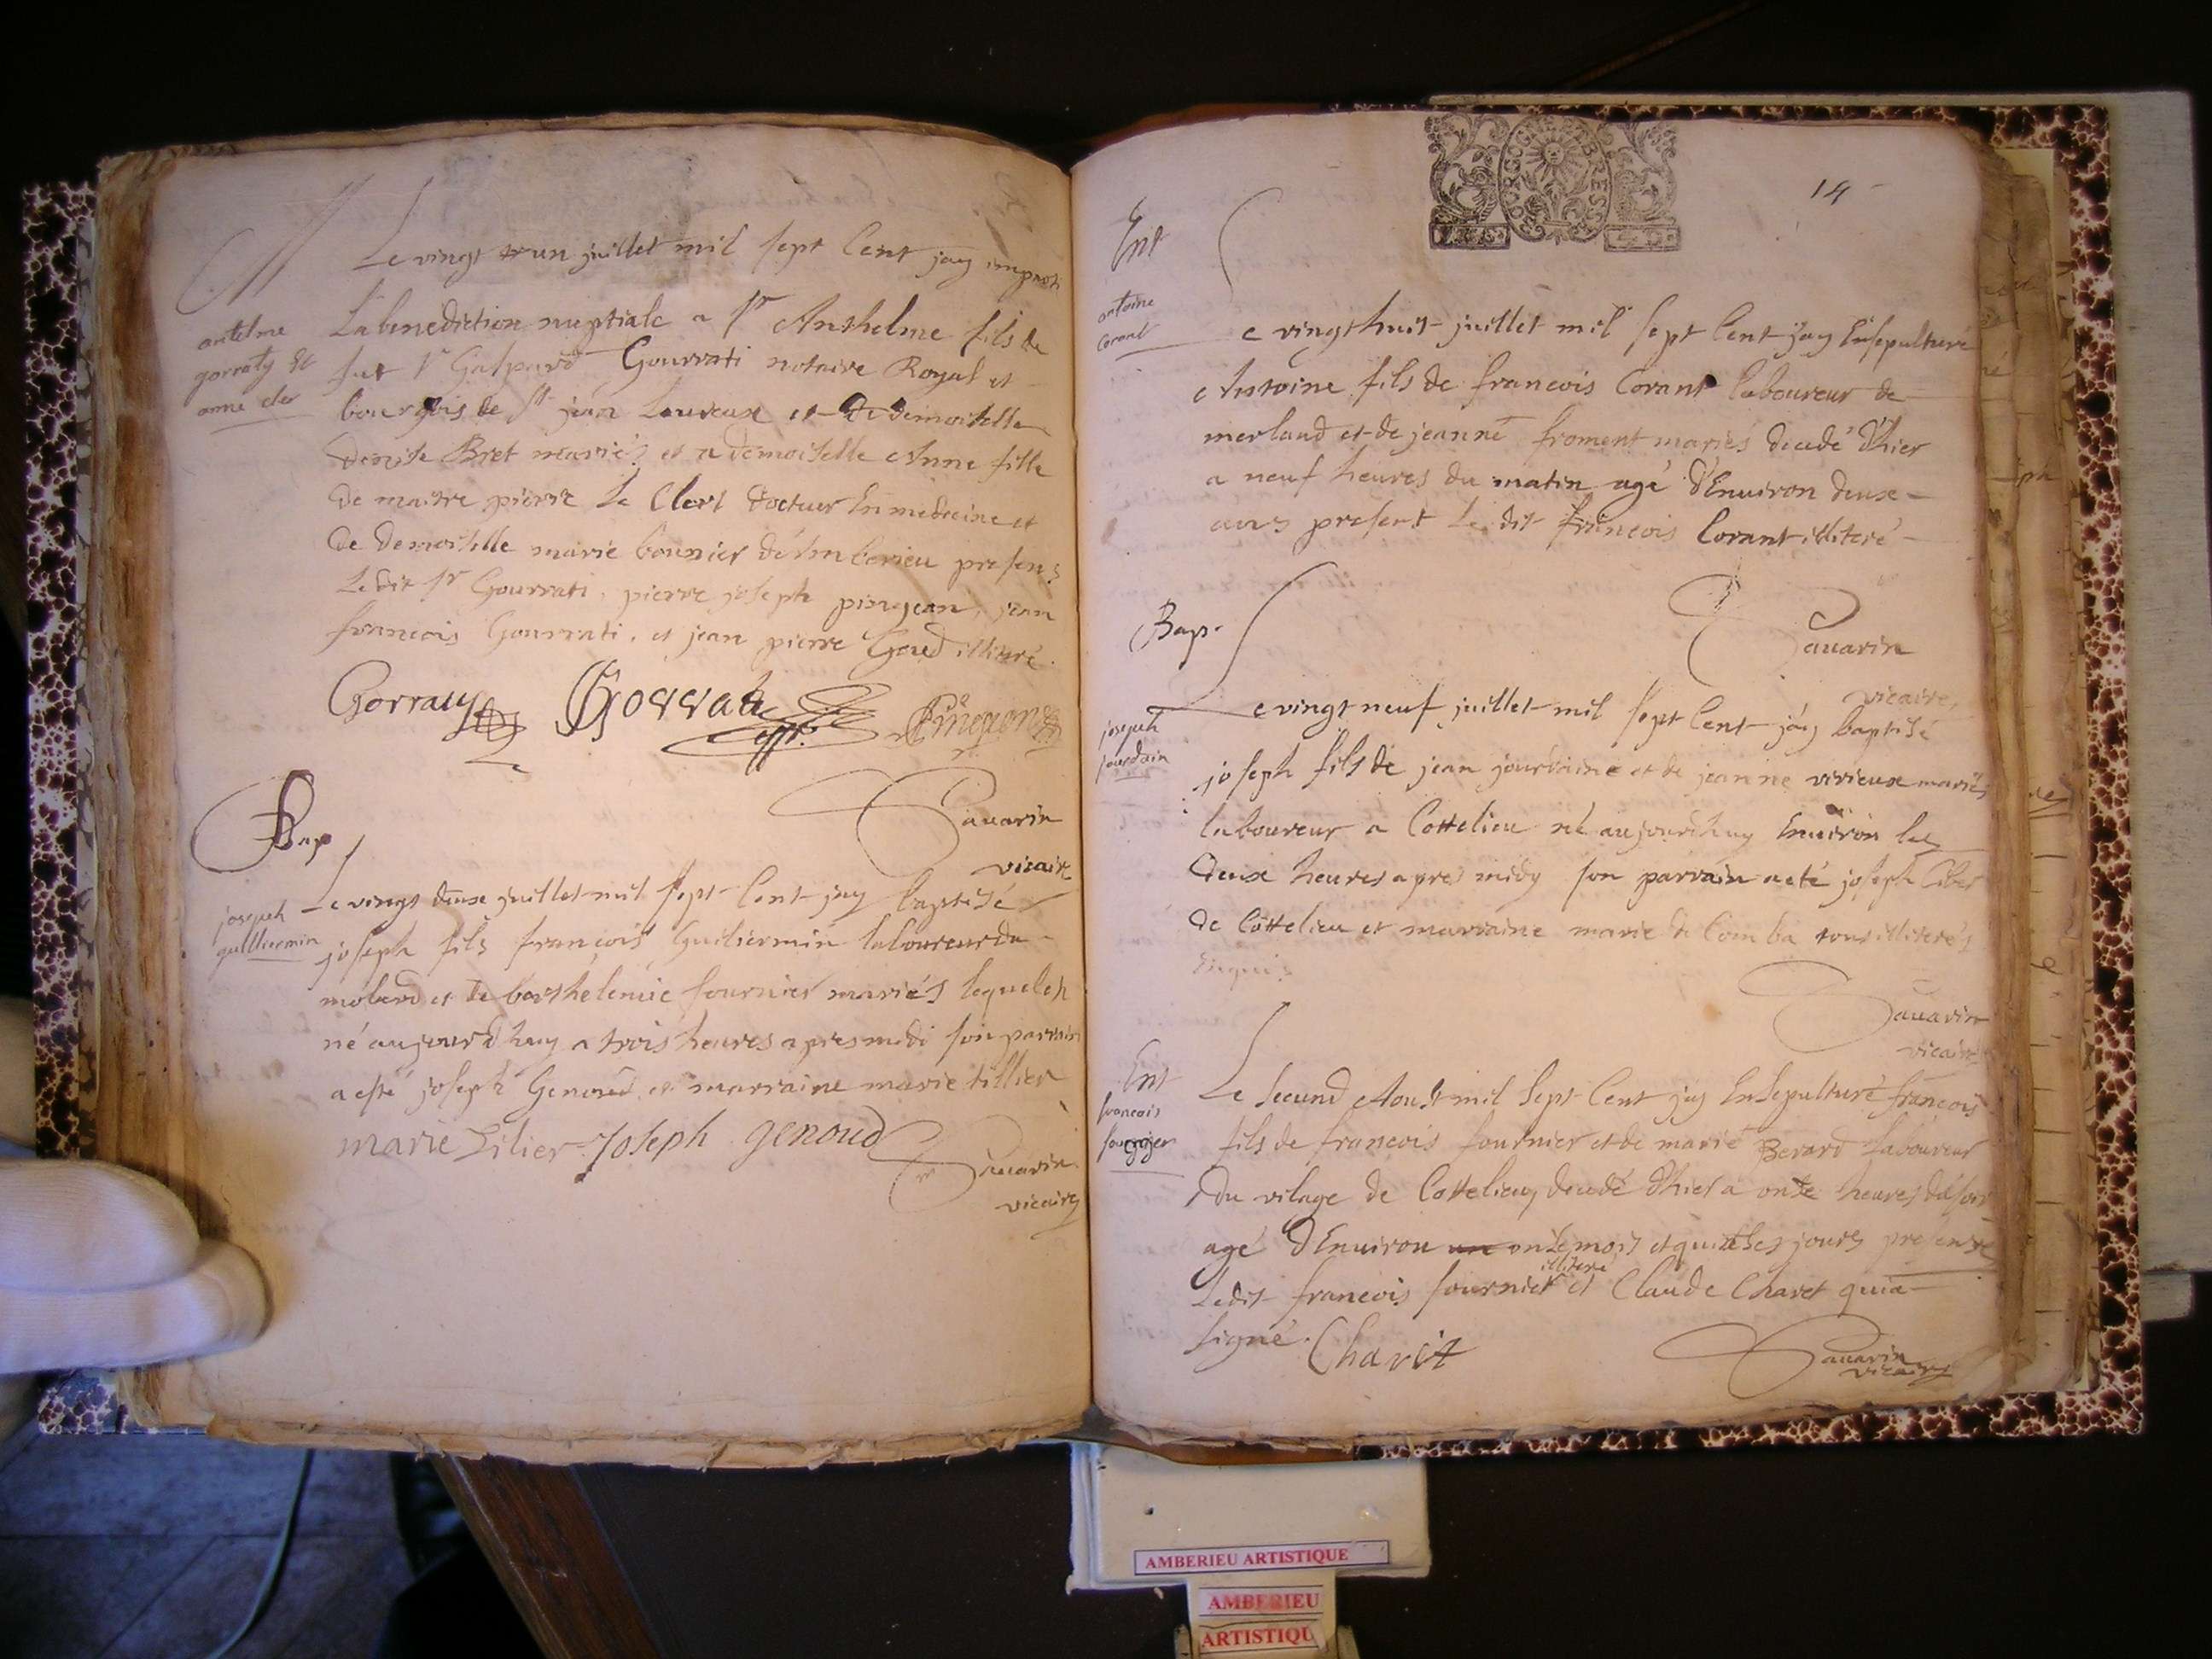 M
Le vingt un juillet mil sept Cent jay imparti
La benediction nuptiale a Sr Anthelme fils de
antelme
gorraty Et
anne cler
feu Sr Gaspard Gourrati notaire Royal et
bourgois de St jean Leureux et de demoiselle
denise Bret mariés et a demoiselle Anne fille
de maitre pierre Le Clert docteur En medecine et
de demoiselle marie bonnier d'Amberieu presens
Ledit Sr Gourrati, pierre joseph pingeon, jean
francois Gourrati, et jean pierre Goud illitiré.
Gorraty Gorrati Pingeon
Savarin
vicaire
Bap
joseph
guilliermin
Le vingt deux juillet mil sept Cent jay baptisé
joseph fils francois Guiliermin laboureur du
molard et de barthelemie fournier mariés lequel est
né aujourdhuy a trois heures apres midi son parrain
a esté joseph Genoud et marraine marie tillier
marie Tilier Joseph genoud
Savarin
vicaire
14
BOURGOGNE BRESSE
Ent
antoine
corant
Le vingt huit juillet mil sept Cent jay Ensepulturé
Antoine fils de francois Corant laboureur de
merland et de jeanne froment mariés decedé d'hier
a neuf heures du matin agé d'Environ deux
ans present Le dit francois Corant illiteré
Savarin
vicaire
Bap.
joseph
jourdain
Le vingt neuf juillet mil sept Cent jay baptisé
joseph fils de jean jourdaine et de jeanne virieux mariés
laboureur a Cottelieu né aujourdhuy Environ les
deux heures apres midy son parrain a eté joseph
de Cottelieu et marraine marie de Comba tous illiterés
Enquis
Savarin
vicaire
Ent
francois
fournier
Le second Aoust mil Sept Cent jay Ensepulturé francois
fils de francois fournier et de marie Berard laboureur
du vilage de Cottelieu, decedé d'hier a onze heures du soir
agé d'Environ un onze mois et quinze jours presents
Ledit francois fournier illiteré et Claude Charet qui a
signé. Charet
Savarin
vicaire
AMBERIEU ARTISTIQUE
AMBERIEU
ARTISTIQU